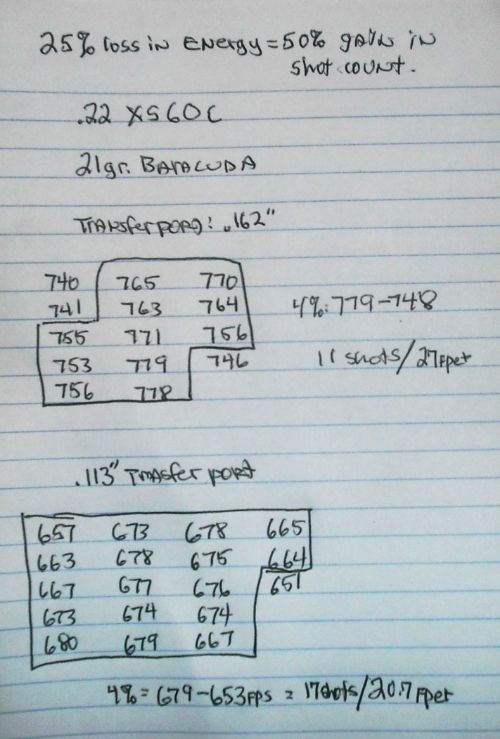 25% loss in energy = 50% gain in
shot count.
.22 XS60C
21gr. Baracuda
Transfer port: .162"
740 765 770
741 763 764
755 771 756
753 779 746
756 778
4%: 779-748
11 shots/27fpet
.113" Trasfer port
657 673 678 665
663 678 675 664
667 677 676 651
673 674 674
680 679 667
4% = 679-653fps = 17shots/20.7fper